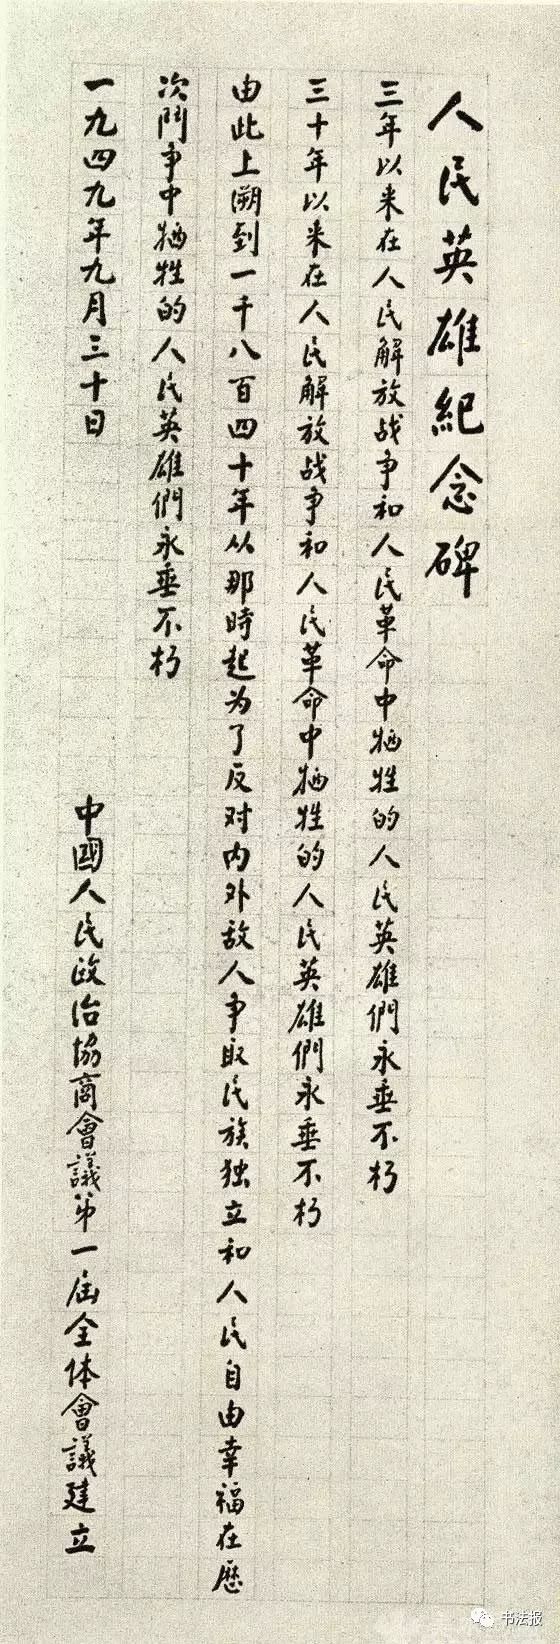 人民英雄紀念碑
三年以来在人民解放战争和人民革命中牺牲的人民英雄們永垂不朽
三十年以来在人民解放战争和人民革命中牺牲的人民英雄們永垂不朽
由此上溯到一千八百四十年从那時起为了反对内外敌人争取民族独立和人民自由幸福在歷
次鬥争中牺牲的人民英雄們永垂不朽
一九四九年九月三十日
中國人民政治協商會議第一届全体會議建立
书法报